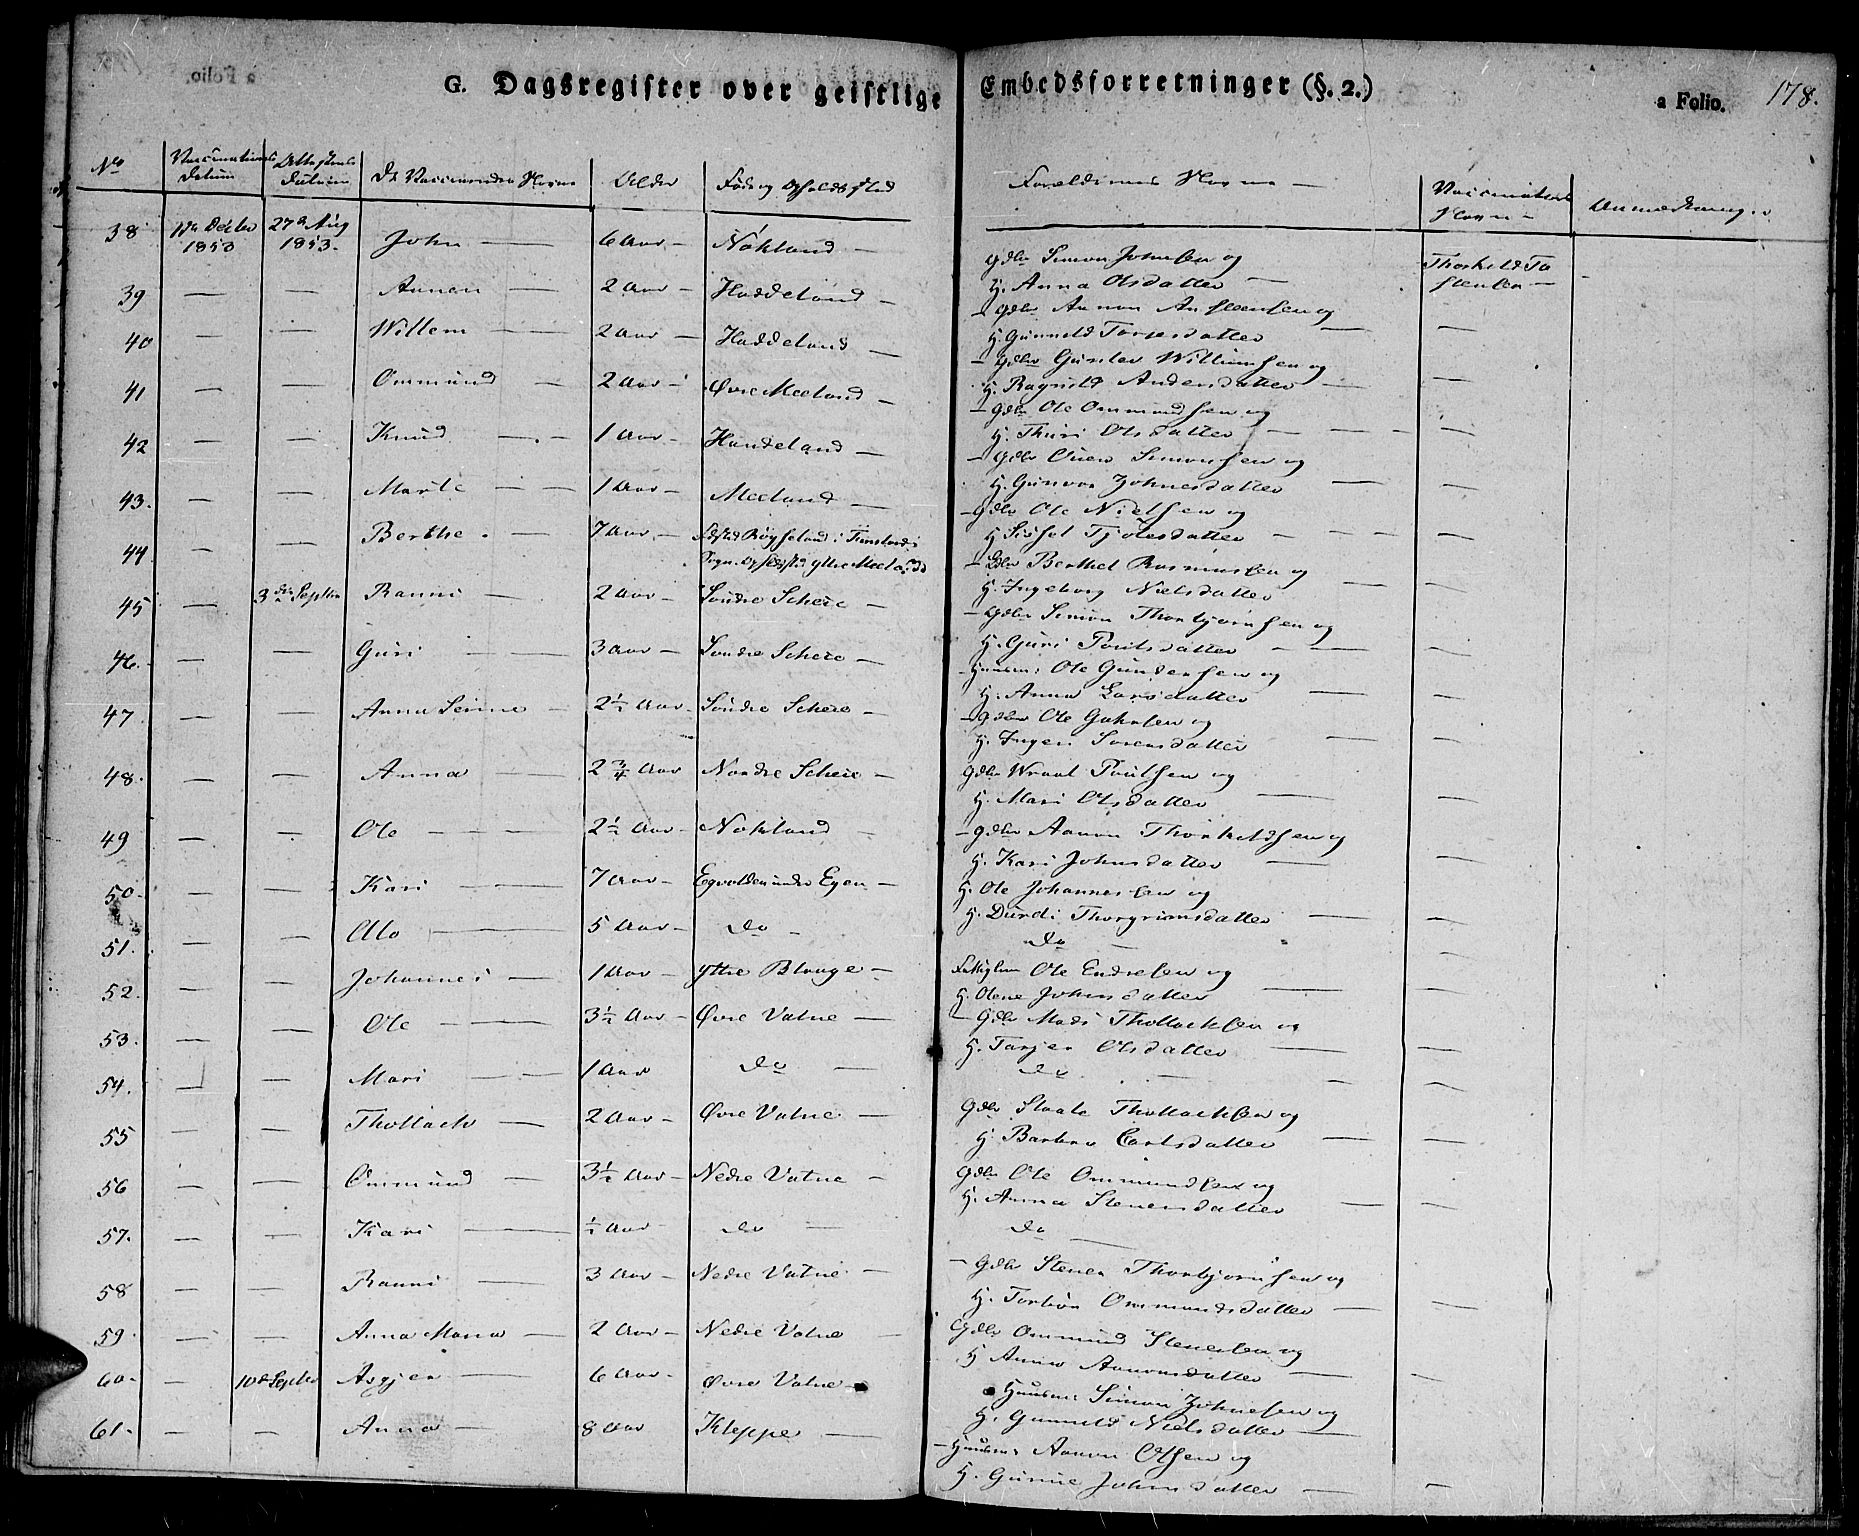 G. Dagsregister over geistlige Embedsforretninger (§. 2.) a Folio. 178.
No Vaccinations Datum Attestens Datum De Vaccineredes Navne Alder Føde og Opholds Sted Forældrenes Navne Vaccinateurs Navn Anmærkninger
38 1853 27de Aug 1853. John 6 Aar Nökland Gdbr Simon Johnsen og
H. Anna Olsdatter
39 — — Aanen 2 Aar Haddeland Gdbr Aanon og
H. Gunnild Torjesdatter —
40 — — Willem 2 Aar Haddeland Gdbr Gunder Willumsen og
H. Ragnild Andersdatter —
41 — — Ommund 2 Aar Øvre Meeland Gdbr Ole Ommundsen og
H. Thuri Olsdatter —
42 — — Knud 1 Aar Handeland Gdbr Simonsen og
H. Gunvor Johnesdatter —
43. — — Marte 1 Aar Meeland Gdbr Ole Nielsen og
H. Sissel Tjölsdatter —
44 — — Berthe 7 Aar Födested Röysland i Finslands
Sogn. Opholdssted ytre Meeland Gdbr Berthel Rasmussen og
H. Ingeborg Nielsdatter —
45 — 3die Septbr Ranni 2 Aar Söndre Scheie Gdbr Simon Thorbjörnsen og
H. Guri Poulsdatter —
46. — — Guri 3 Aar Söndre Scheie Huusm: Ole Gundersen og
H. Anna Larsdatter —
47 — — Anna Serine 2½ Aar Söndre Scheie Gdbr Ole og
H. Inger Sorensdatter —
48. — — Anna 2¾ Aar Nordre Scheie Gdbr Wraal Poulsen og
H. Mari Olsdatter —
49 — — Ole 2½ Aar Nökland Gdbr Aanon Thorkildsen og
H. Kari Johnsdatter —
50. — — Kari 7 Aar Egvolden under Egen H. Ole Johannessen og
H. Durdi Thorgrimsdatter —
51. — — Olo 5 Aar do do —
52. — — Johannes 1 Aar ytre Blauge Fattiglem Ole Endresen og
H. Olene Johnsdatter —
53. — Ole 3½ Aar Øvre Vatne Gdbr Mads Thollachsen og
H. Tarjer Olsdatter —
54. — — Mari 1 Aar do do —
55 — — Thollach 2 Aar Øvre Vatne Gdbr Staale Thollachsen og
H. Barbro Carlsdatter —
56 — — Ommund 3½ Aar Nedre Vatne Gdbr Ole Ommundsen og
H. Anna Stenersdatter —
57. — — Kari ½ Aar do do —
58 — — Ranni 3 Aar Nedre Vatne Gdbr Stener Thorbjörnsen og
H. Torbör Ommundsdatter —
59 — — Anna Maria 2 Aar Nedre Vatne Gdbr Ommund Stenersen og
H. Anne Aanonsdatter —
60. — 10de Septbr Asgjer 6 Aar Øvre Vatne Huusm: Simon Johnesen og
H. Gunnild Nielsdatter —
61. — — Anna 8 Aar Kleppe Huusm: Aanon Olsen og
H. Gunnie Johnsdatter —